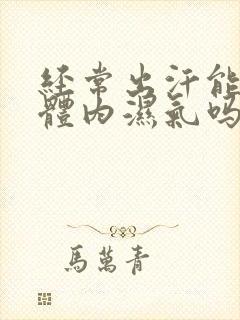 經常出汗能
體內濕氣嗎
馬萬青